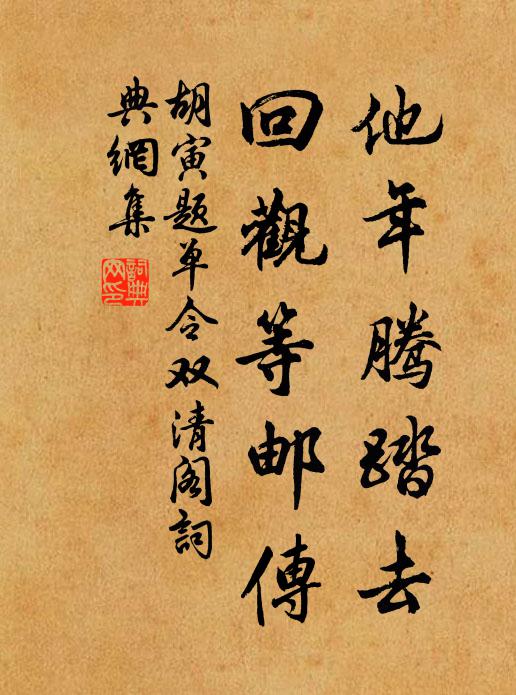 他年腾踏去
回觀等邮傳
胡寅题单令双清阁詞
典網集
詞典
网印